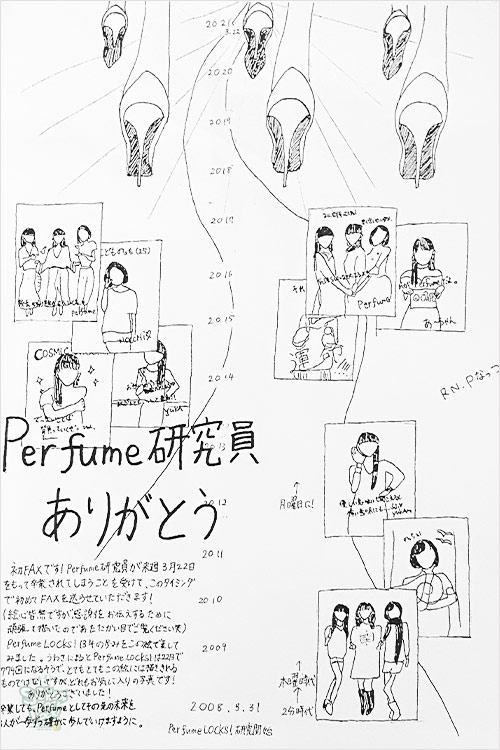 2021
3.22
2020
2019
2018
2017
2016
2015
2014
2012
2011
2010
2009
2008.8.31
Perfume LOCKS! 研究開始
こどものっち(15)
NOCCHi
perfume
COSMIC
Perfume
あ〜ちゃん
R.N.Pなっつ
月曜日に!
木曜日時代
2分時代
Perfume研究員
ありがとう
初FAXです! Perfume研究員が来週3月22日
をもって卒業されてしまうことを受けて、このタイミング
で初めてFAXを送らせていただきます!
(絵心皆無ですが感謝をお伝えするために
頑張って描いたのであたたかい目でご覧ください笑)
Perfume LOCKS! 13年の歩みをこの絵で表して
みました。うわさによるとPerfume LOCKS!は22日で
774回になるそうで、とてもとてもこの絵には収まりきる
ものではないですが、どれもお気に入りの写真です!
ありがとうございました!
卒業しても、Perfumeとしてその先の未来を
3人が一歩ずつ確かに歩んでいけますように。